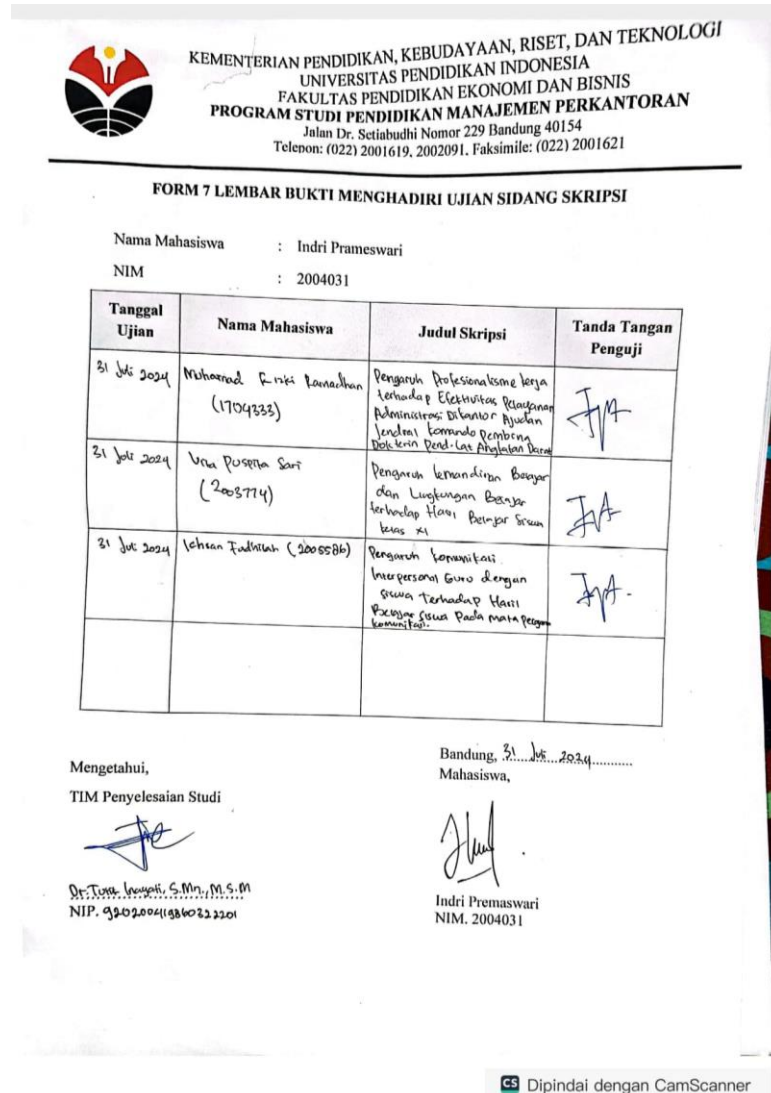 KEMENTERIAN PENDIDIKAN, KEBUDAYAAN, RISET, DAN TEKNOLOGI
UNIVERSITAS PENDIDIKAN INDONESIA
FAKULTAS PENDIDIKAN EKONOMI DAN BISNIS
PROGRAM STUDI PENDIDIKAN MANAJEMEN PERKANTORAN
Jalan Dr. Setiabudhi Nomor 229 Bandung 40154
Telepon: (022) 2001619, 2002091. Faksimile: (022) 2001621
FORM 7 LEMBAR BUKTI MENGHADIRI UJIAN SIDANG SKRIPSI
Nama Mahasiswa : Indri Prameswari
NIM : 2004031
Tanggal
Ujian
Nama Mahasiswa
Judul Skripsi
Tanda Tangan
Penguji
31 Juli 2024
Muhamad Rizki Ramadhan
(1704333)
Pengaruh Profesionalisme kerja
terhadap Efektivitas Pelayanan
Administrasi Dikantor Ajudan
Jendral Komando Pembina
Doktrin Pend-Lat Angkatan Darat
31 Juli 2024
Puspita Sari
(2003774)
Pengaruh kemandirian Belajar
dan Lingkungan Belajar
terhadap Hasil Belajar Siswa
kelas XI
31 Juli 2024
Ichsan Fadhilah (2005586)
Pengaruh komunikasi
Interpersonal Guru dengan
siswa terhadap Hasil
Belajar siswa Pada mata
komunikasi.
Bandung, 31 Juli 2024
Mahasiswa,
Mengetahui,
TIM Penyelesaian Studi
Dr. Inayati, S.Mn., M.S.M
NIP. 920200419860322201
Indri Premaswari
NIM. 2004031
CS Dipindai dengan CamScanner